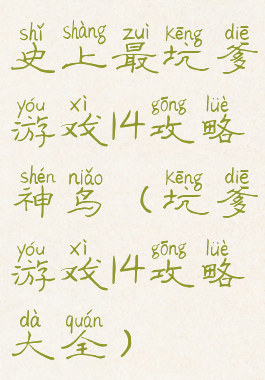 shǐ shàng zuì kēng diē
史上最坑爹
yóu xì gōng lüè
游戏14攻略
shén niǎo kēng diē
神鸟（坑爹
yóu xì gōng lüè
游戏14攻略
dà quán
大全）